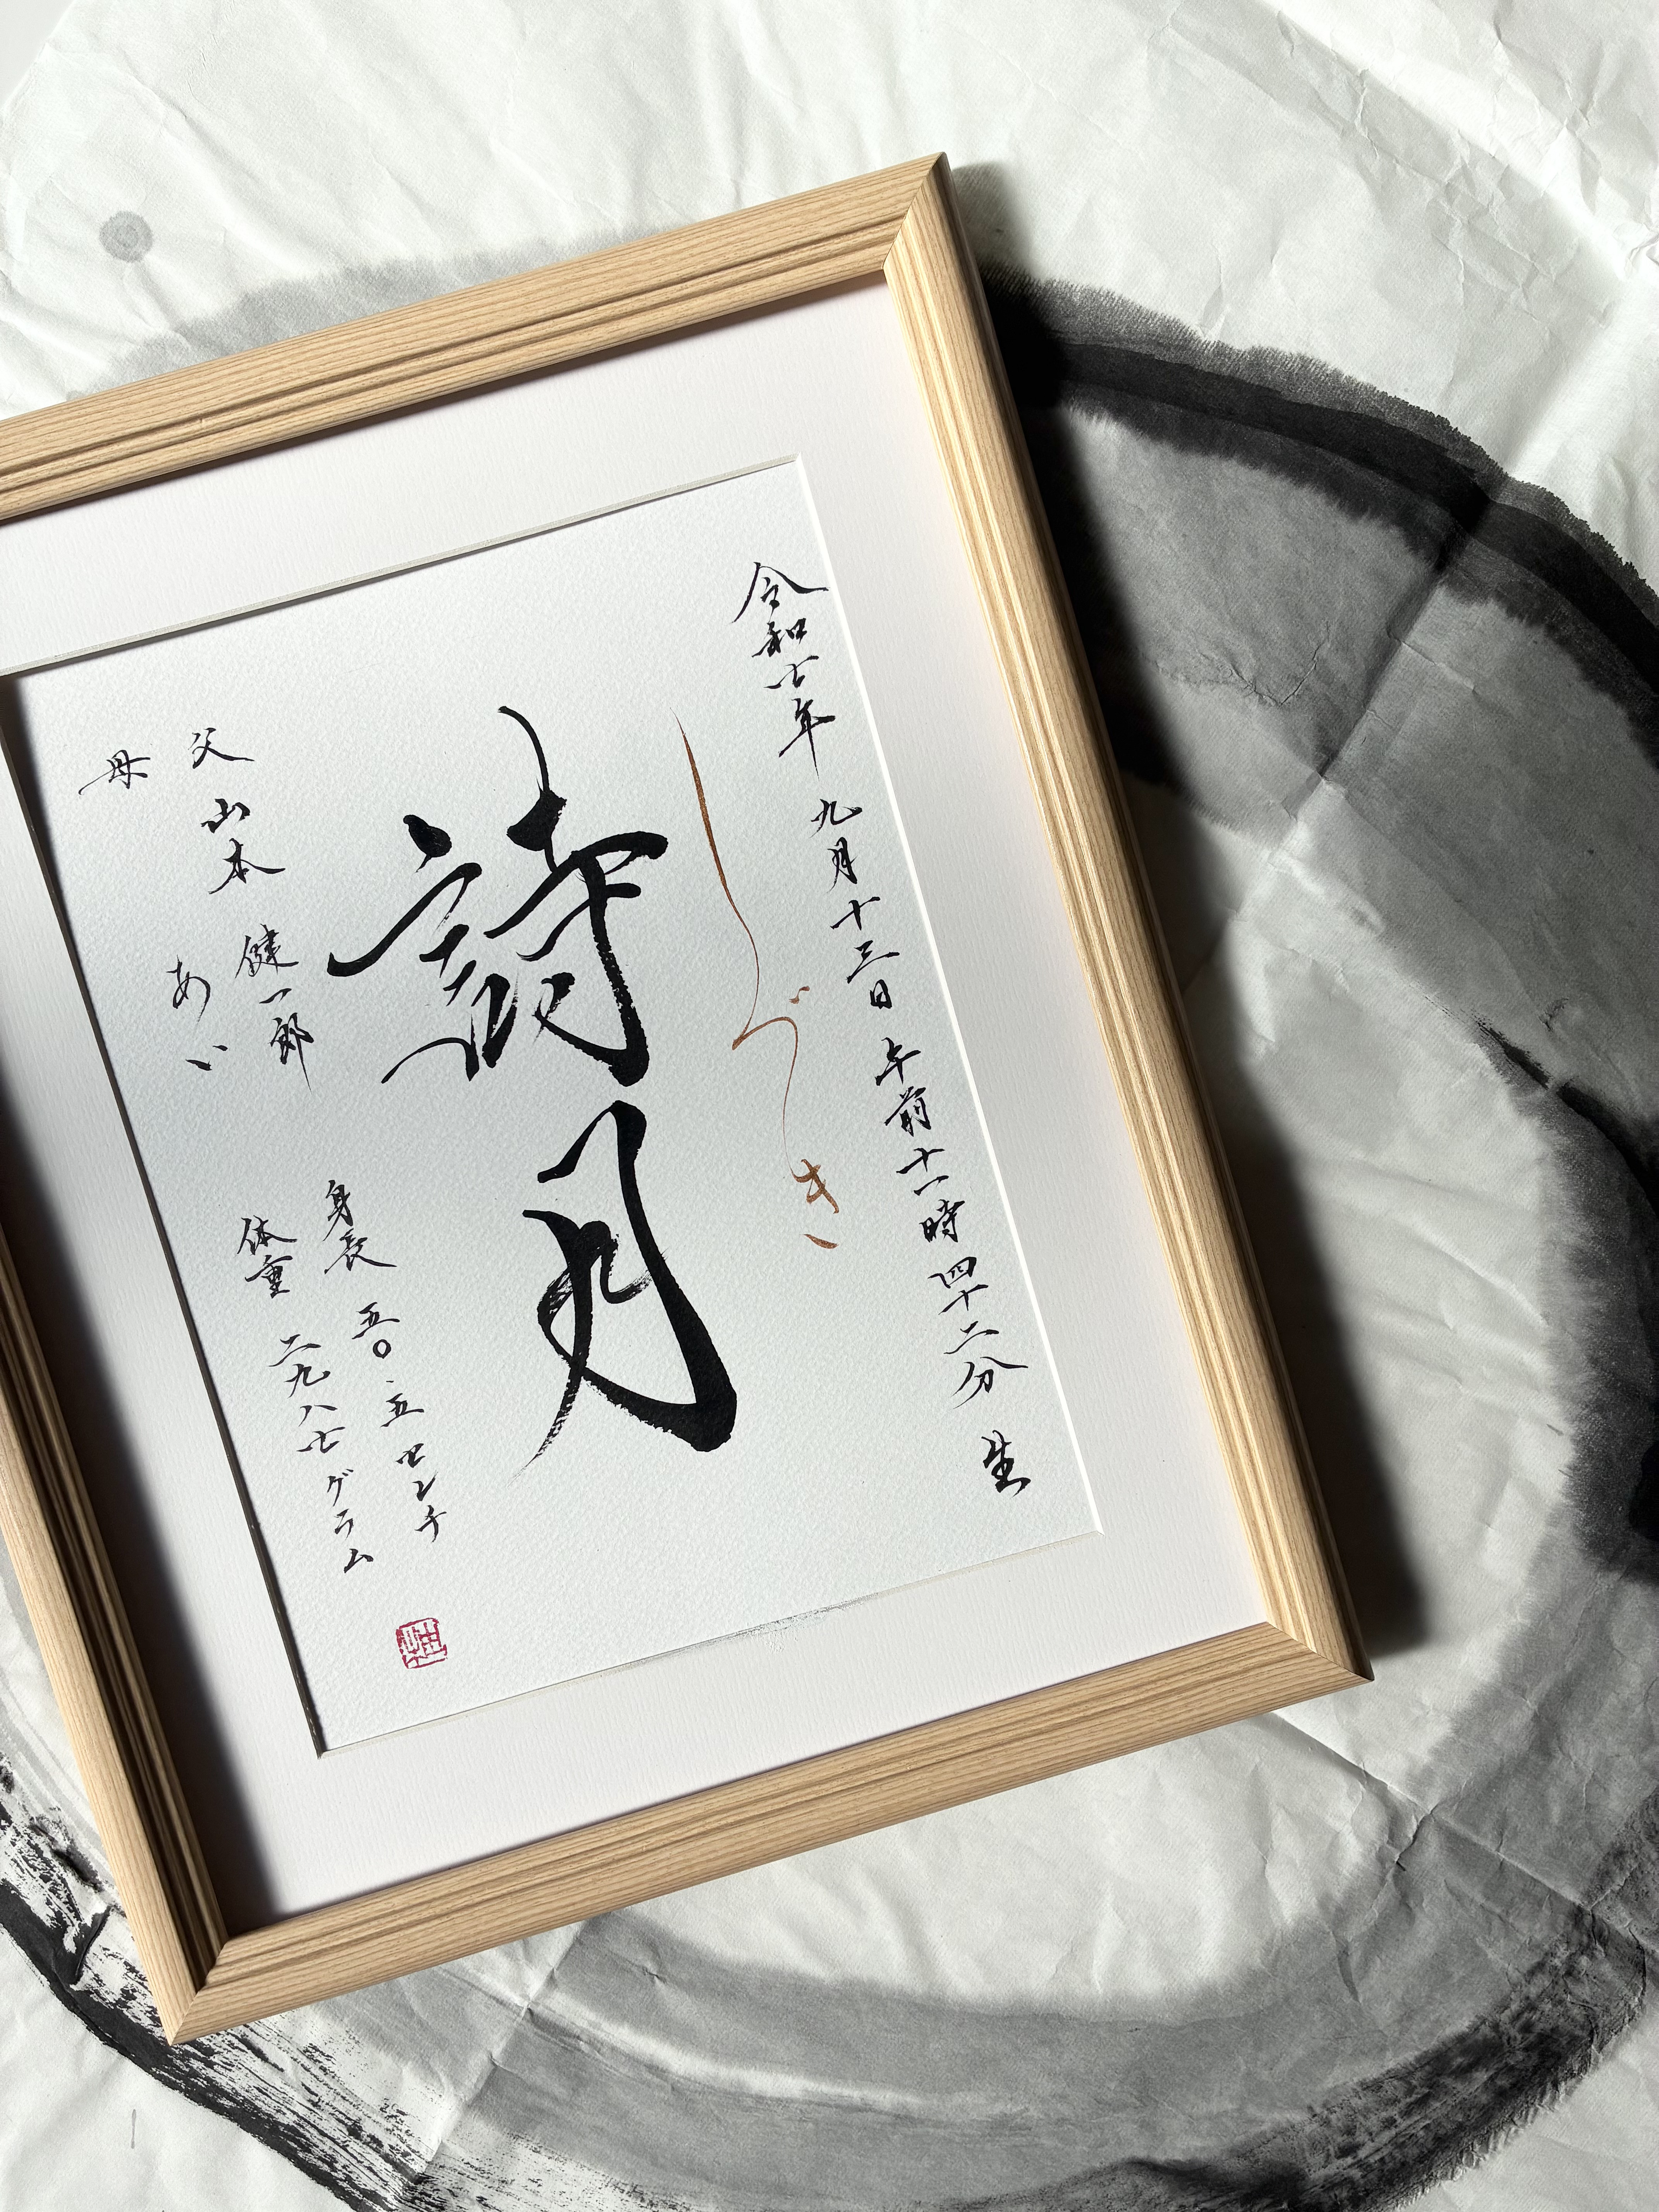 令和七年 九月十三日 午前十一時四十二分 生
しづき
詩月
父 山本 健一郎
母 あい
身長 五〇.五センチ
体重 二九八七グラム